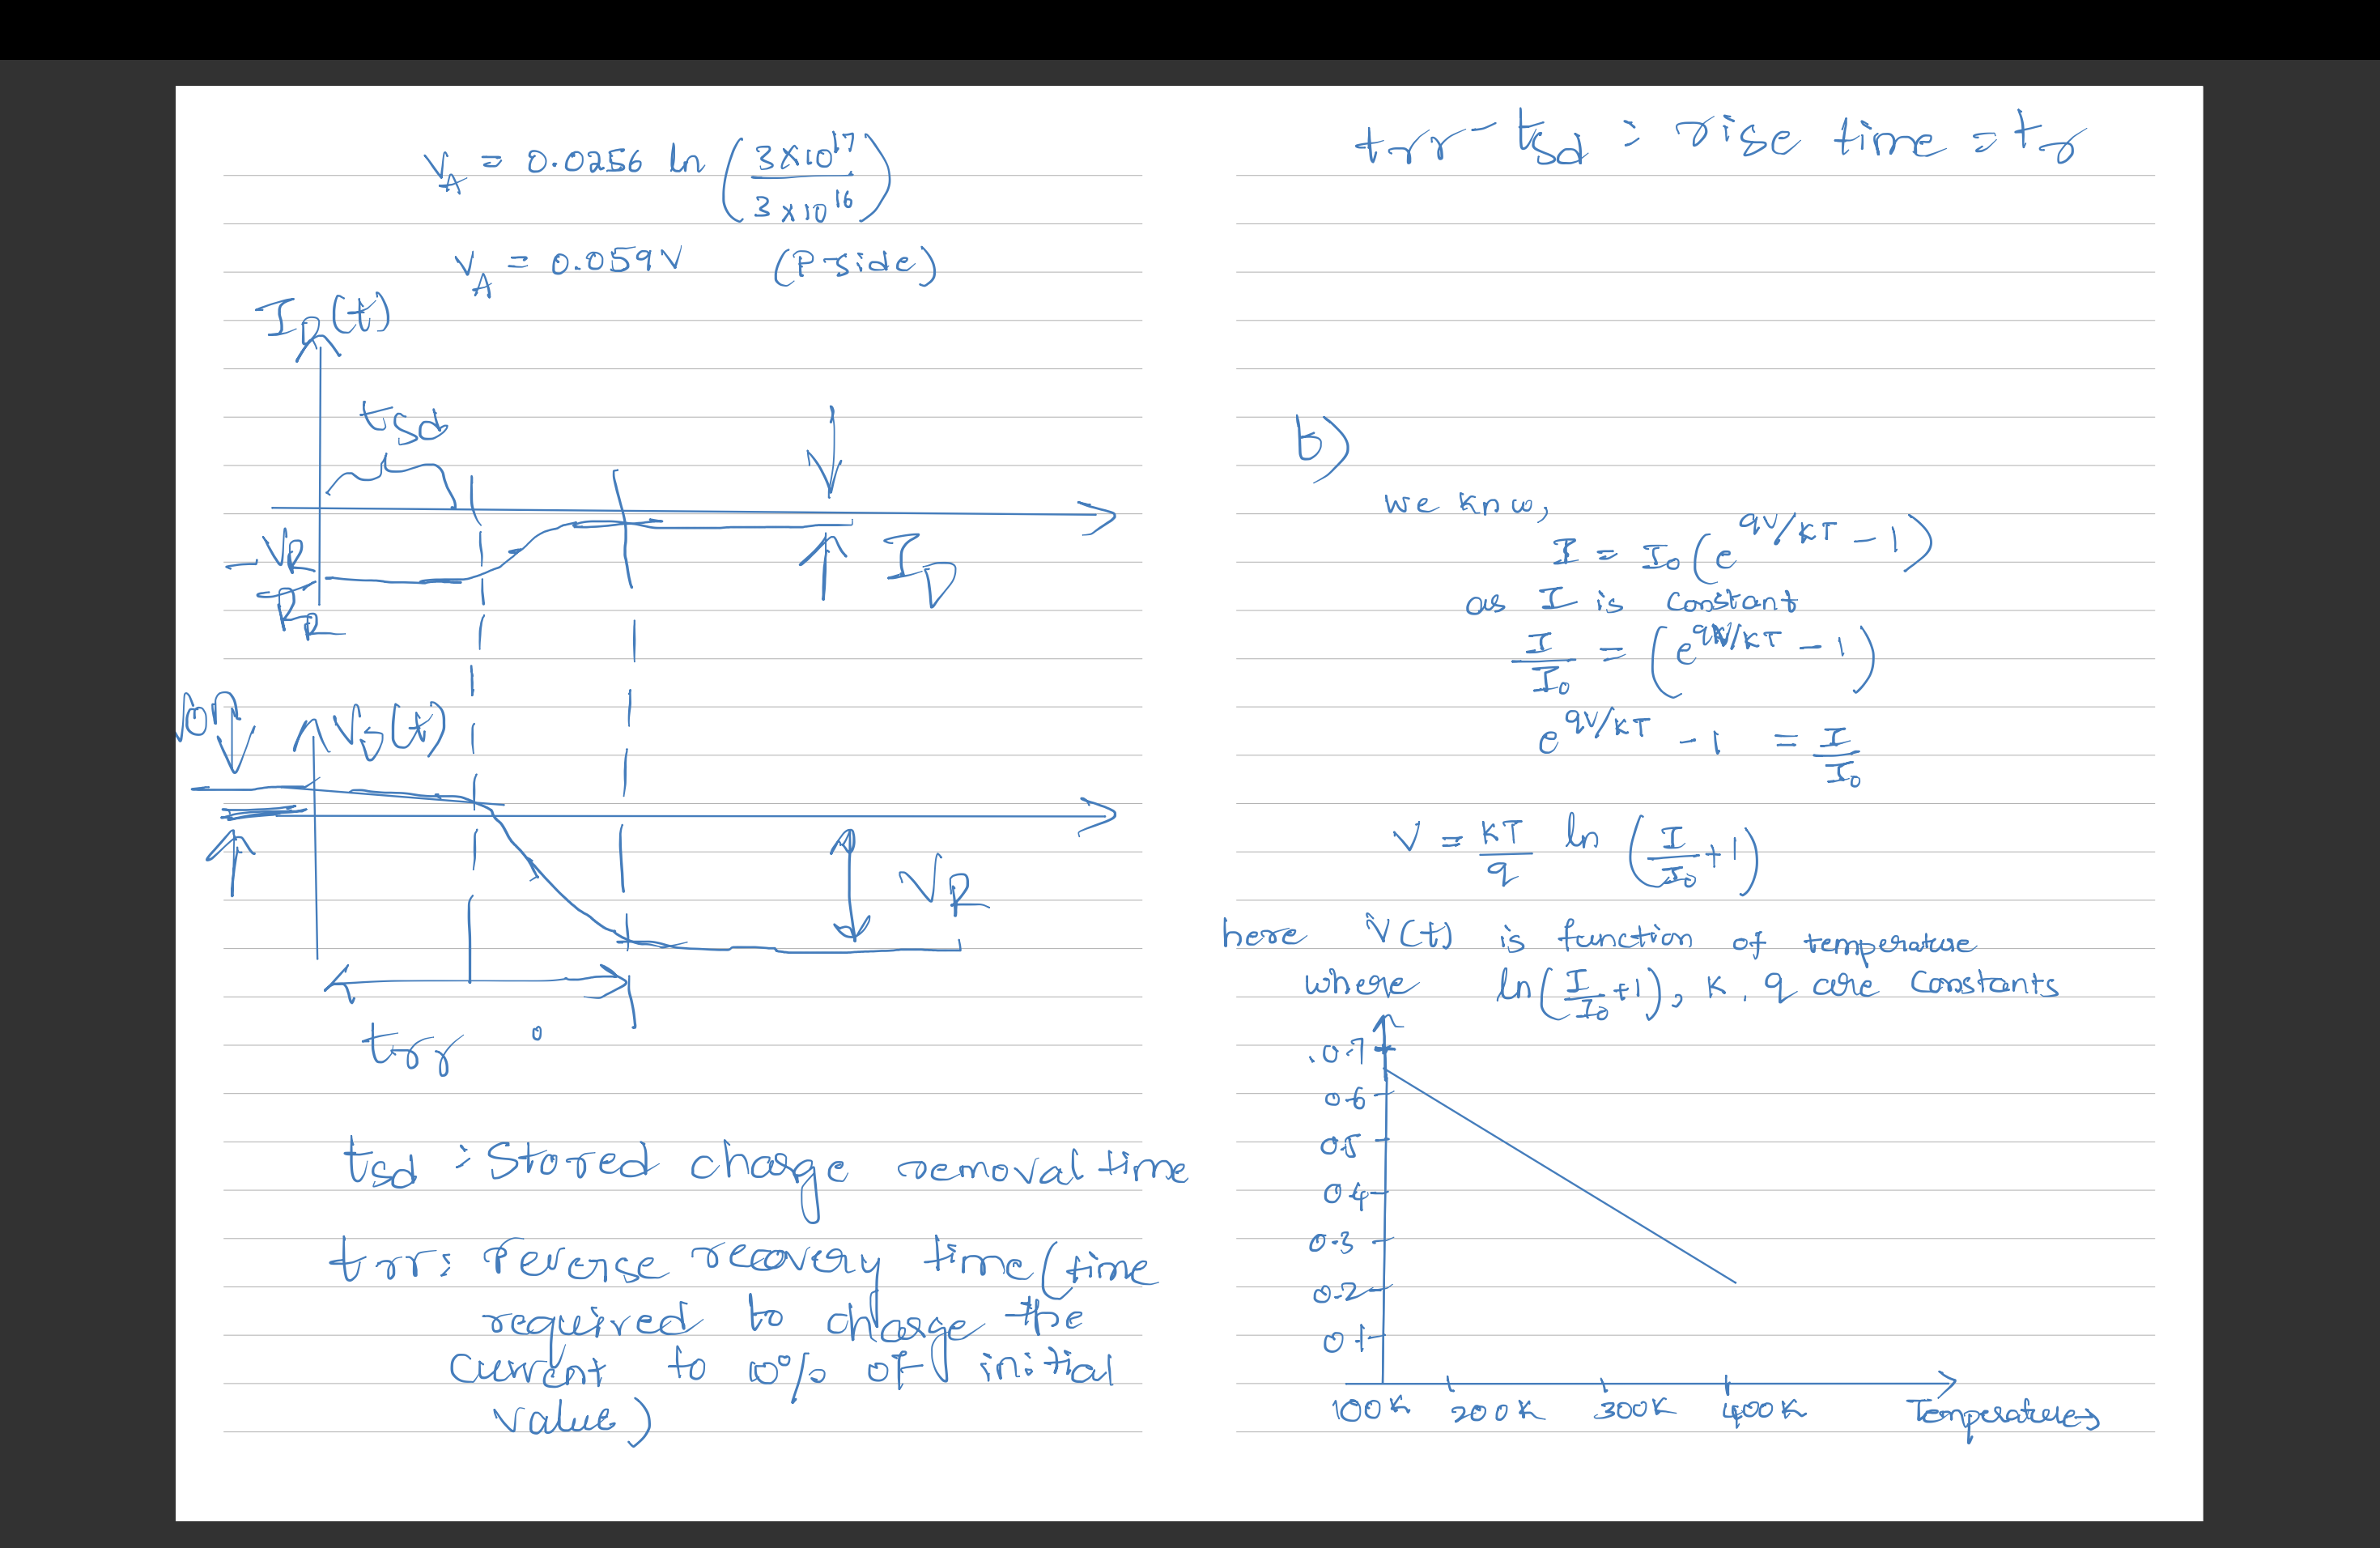 V_A = 0.0256 ln (3×10^17 / 3×10^16)
V_A = 0.059V (P-side)
I_R(t)
t_sd
-V_R / R_R
I_D
V_on
V_J(t)
V_R
t_rr
t_sd : Stored charge removal time
t_rr : Reverse recovery time (time
required to change the
current to 0% of initial
value)
t_rr - t_sd : rise time = t_r
b)
we know,
I = I_0 (e^{qV/KT} - 1)
as I is constant
I/I_0 = (e^{qV/KT} - 1)
e^{qV/KT} - 1 = I/I_0
V = KT/q ln (I/I_0 + 1)
here V(t) is function of temperature
where ln(I/I_0 + 1), K, q are constants
0.7
0.6
0.5
0.4
0.3
0.2
0.1
100K 200K 300K 400K Temperature→